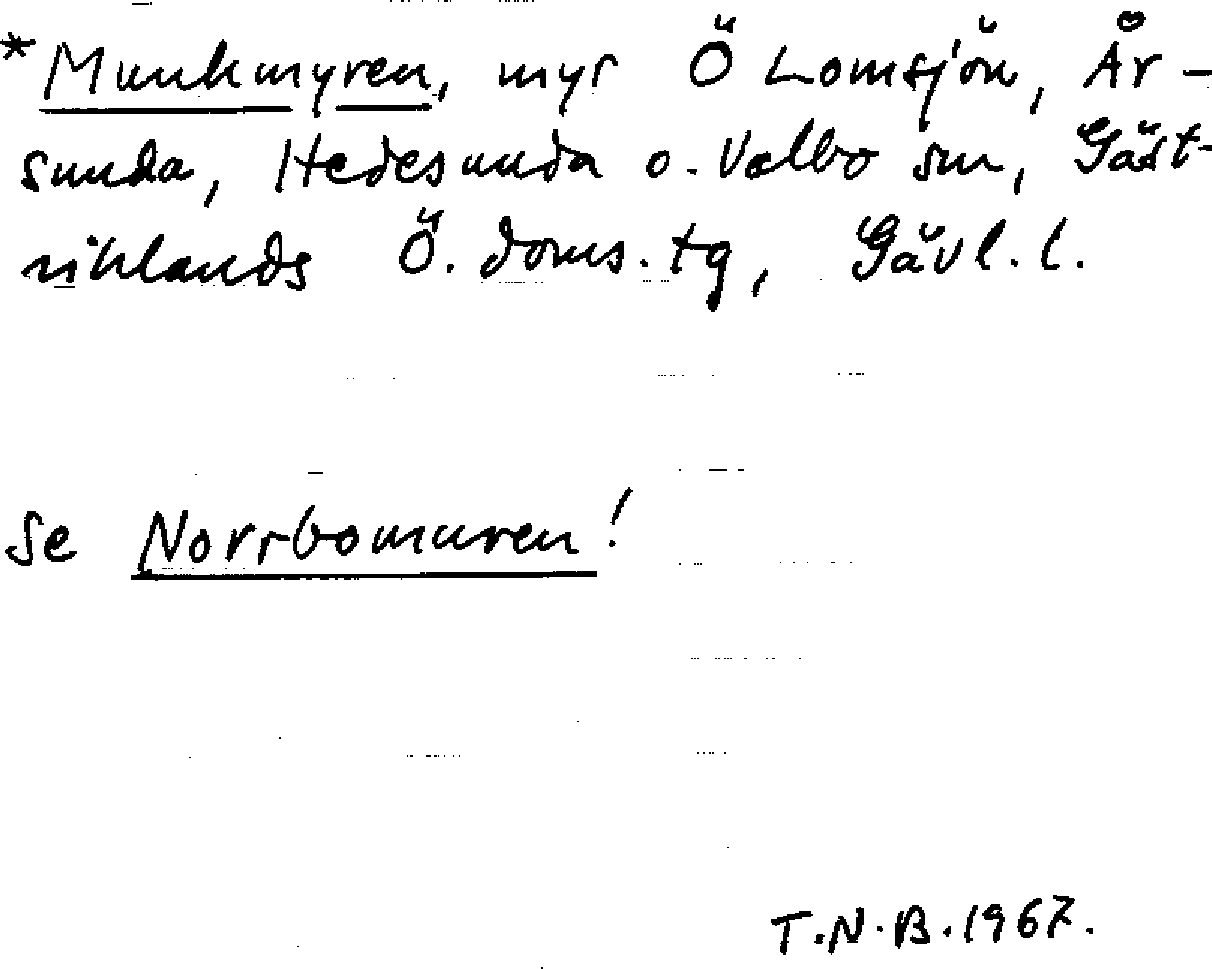 *Munkmyren, myr Ö Lomsjön, År-
sunda, Hedesunda o. Valbo sn, Gäst-
riklands Ö. doms. tg, Gävl. l.
Se Norrbomuren!
T.N.B. 1967.